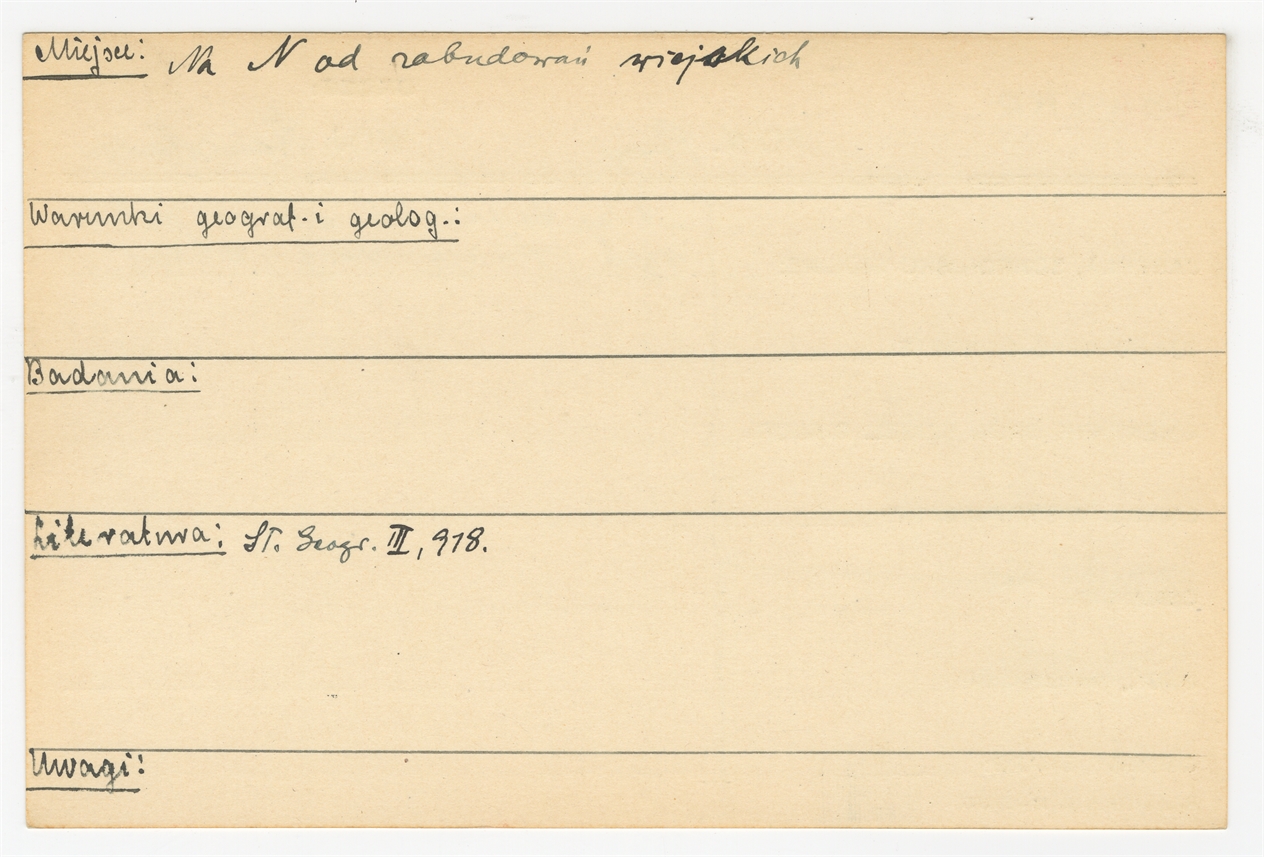 Miejsce: Na N od zabudowań wiejskich
Warunki geograf. i geolog.:
Badania:
Literatura: Sł. Geogr. III, 918.
Uwagi: